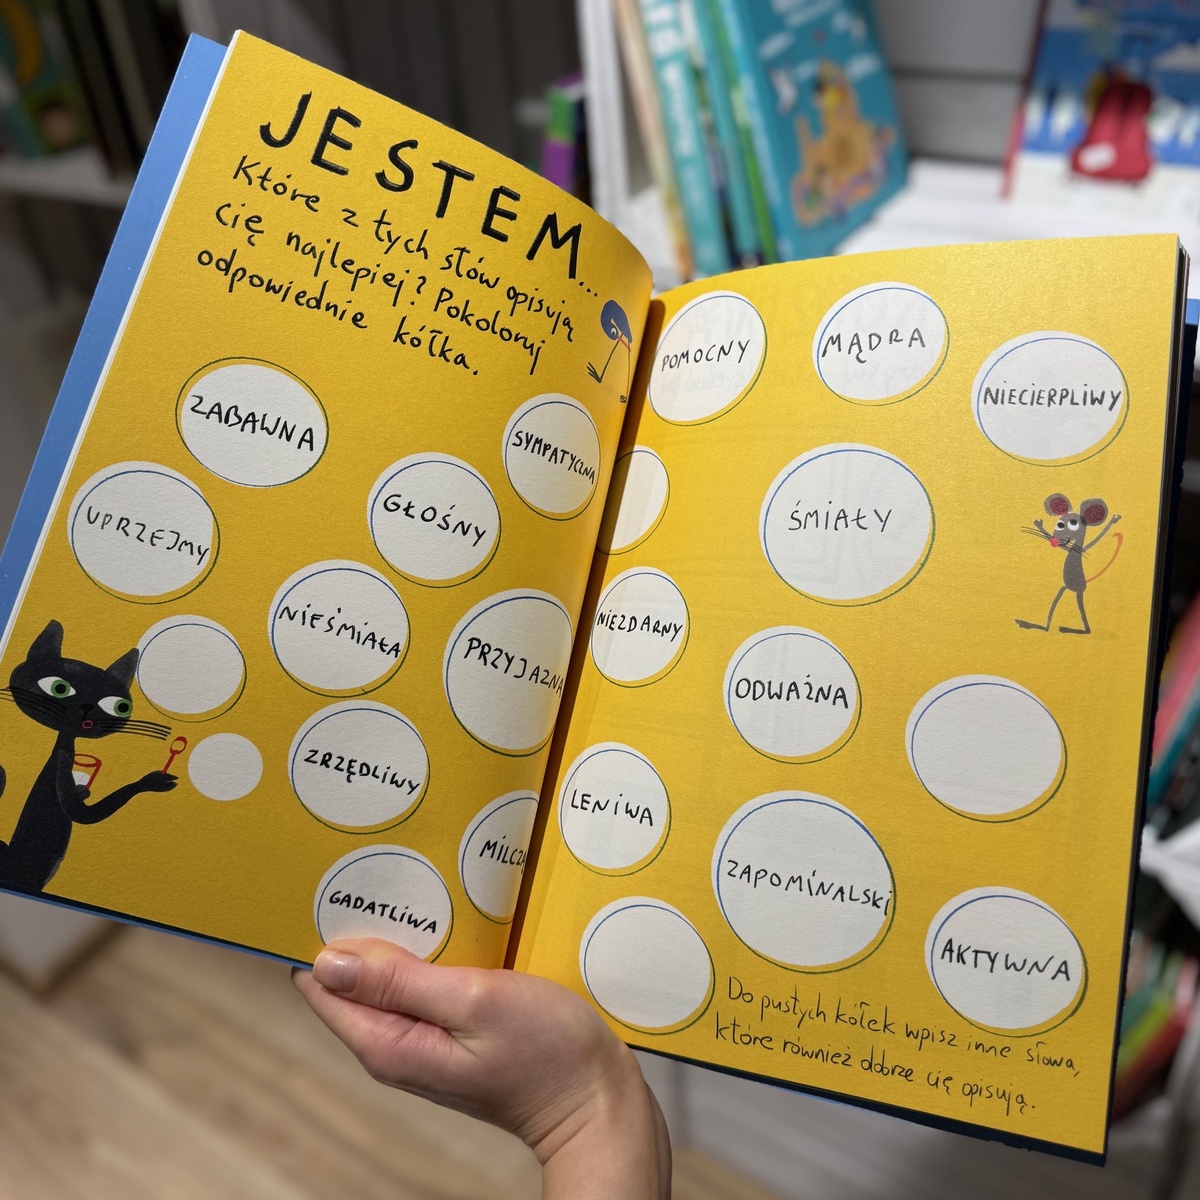 JESTEM...
Które z tych słów opisują
cię najlepiej? Pokoloruj
odpowiednie kółka.
ZABAWNA
SYMPATYCZNA
UPRZEJMY
GŁOŚNY
NIEŚMIAŁA
PRZYJAZNA
ZRZĘDLIWY
GADATLIWA
POMOCNY
MĄDRA
NIECIERPLIWY
ŚMIAŁY
NIEZDARNY
ODWAŻNA
LENIWA
ZAPOMINALSKI
AKTYWNA
Do pustych kółek wpisz inne słowa,
które również dobrze cię opisują.